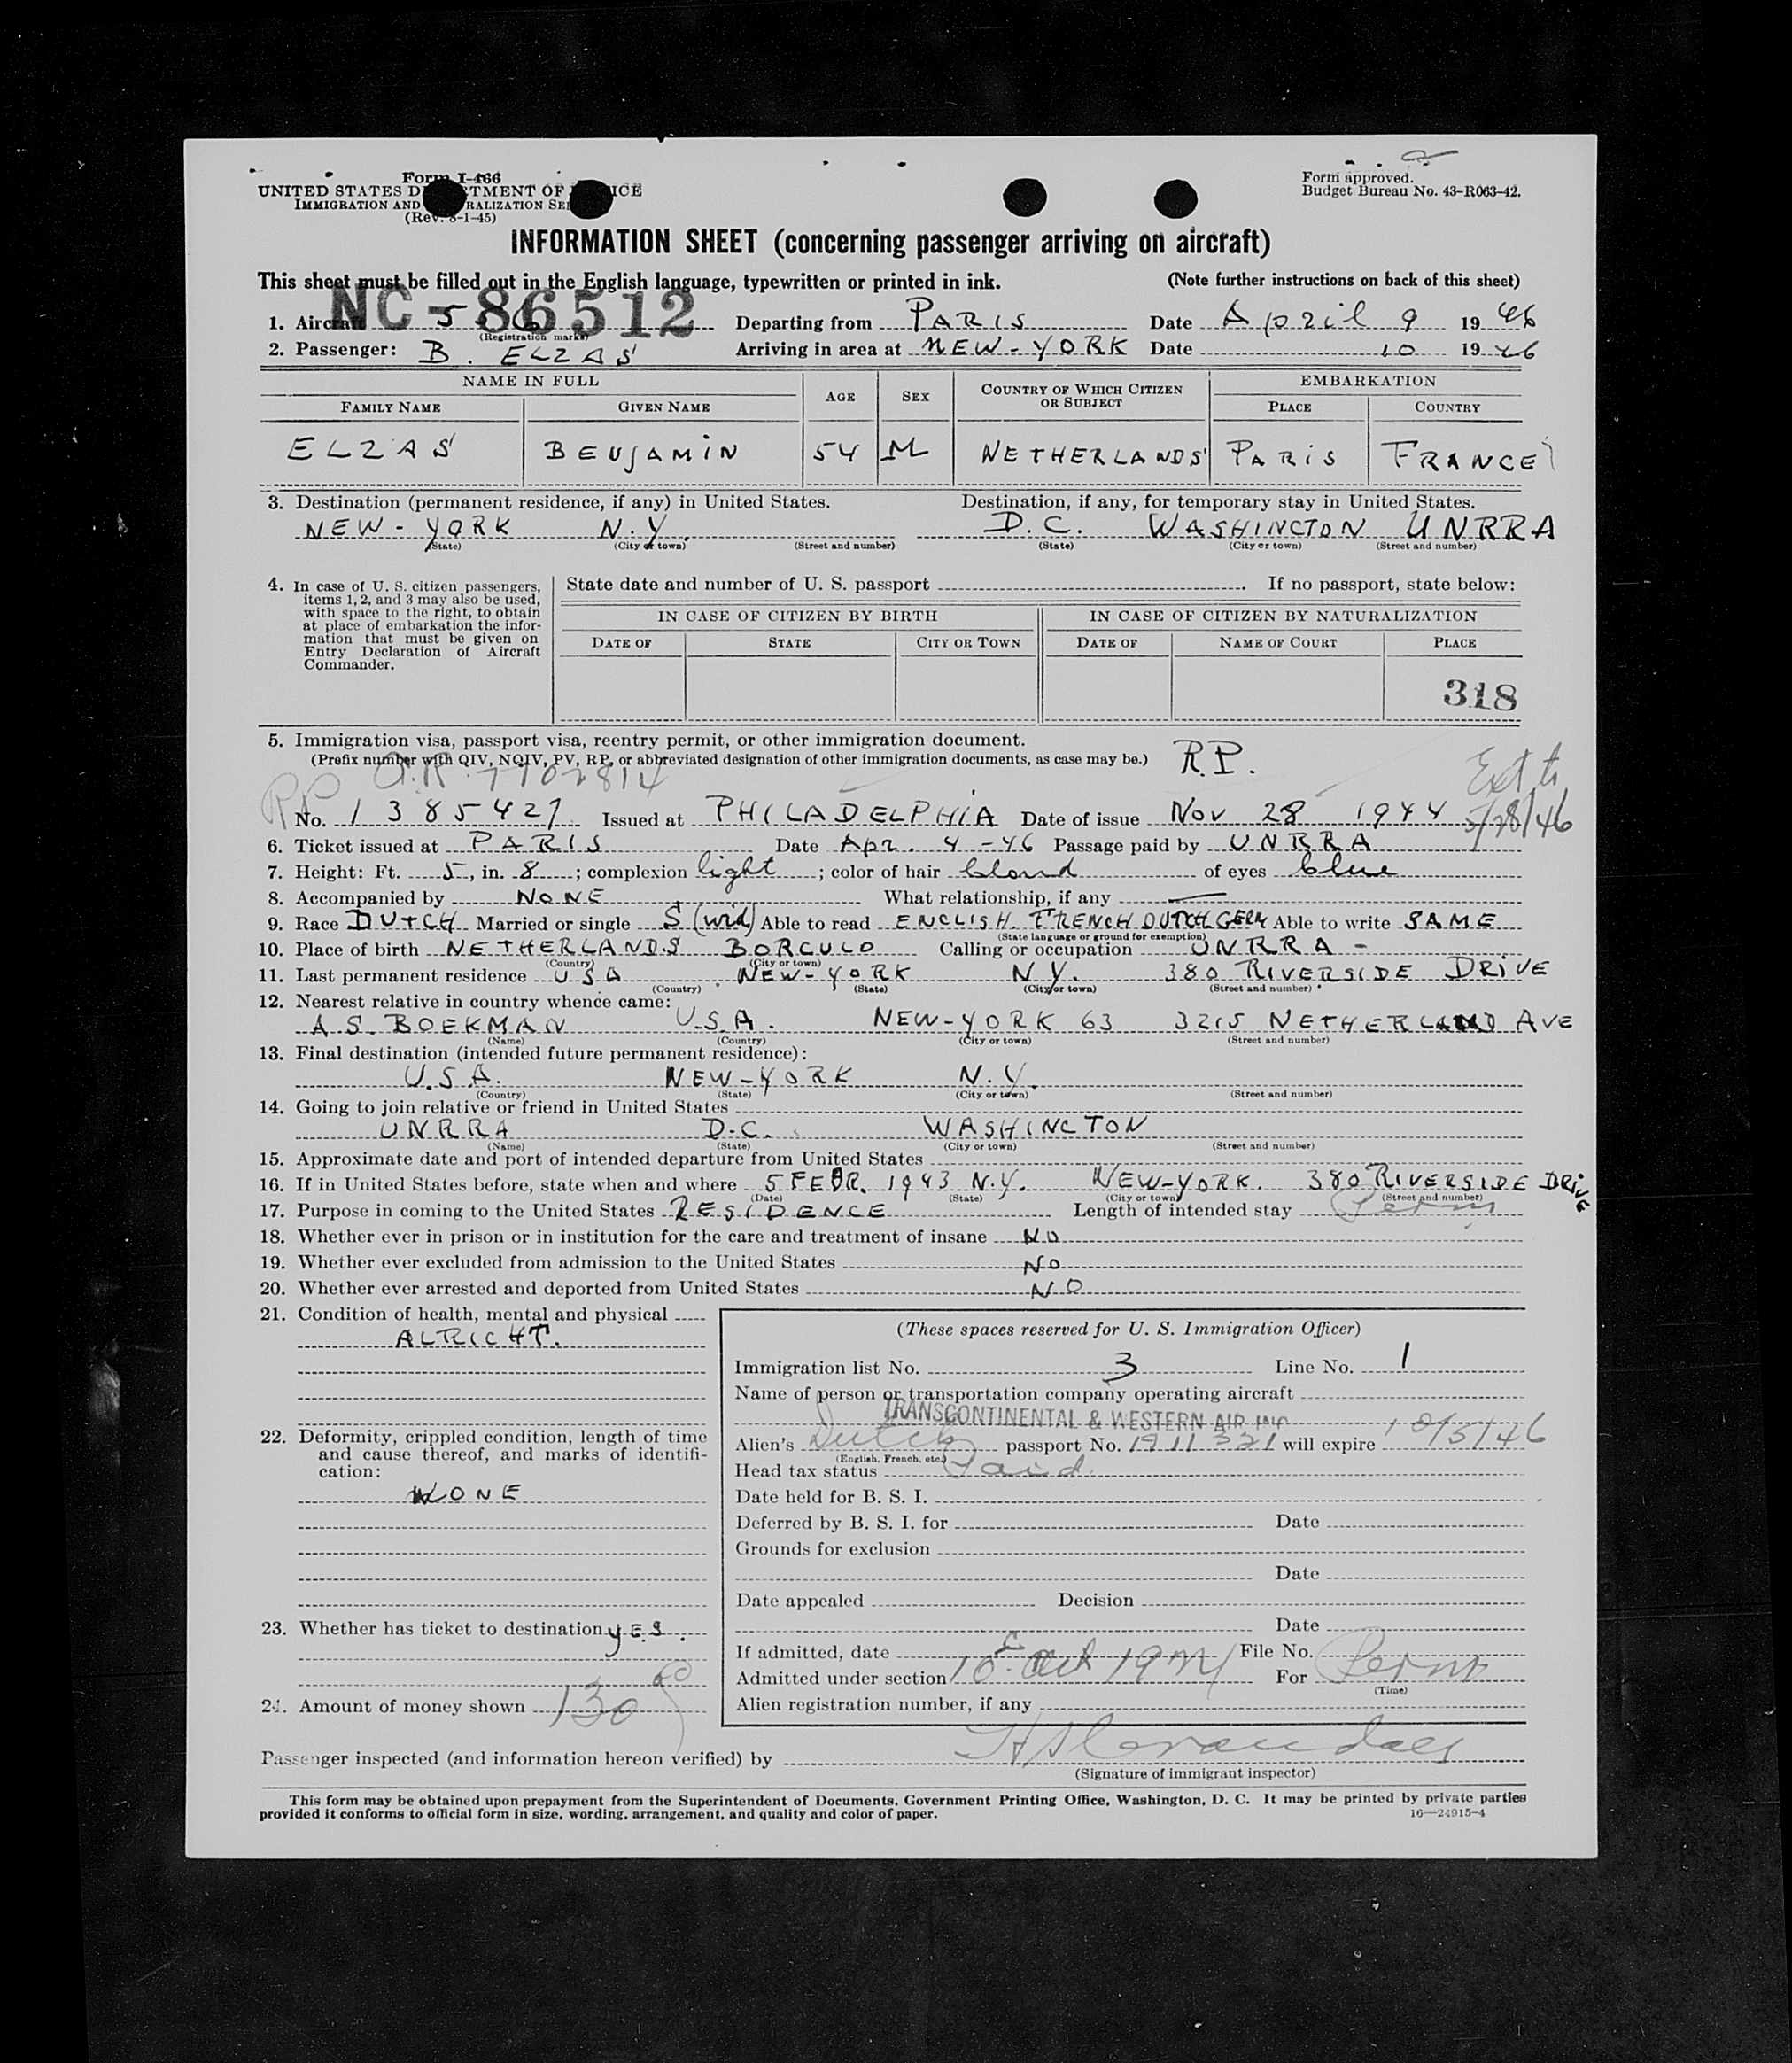 Form I-466
UNITED STATES DEPARTMENT OF JUSTICE
IMMIGRATION AND NATURALIZATION SERVICE
(Rev. 8-1-45)
Form approved.
Budget Bureau No. 43-R063-42.
INFORMATION SHEET (concerning passenger arriving on aircraft)
This sheet must be filled out in the English language, typewritten or printed in ink. (Note further instructions on back of this sheet)
1. Aircraft NC-86512 Departing from PARIS Date April 9 1946
(Registration marks)
2. Passenger: B. ELZAS Arriving in area at NEW-YORK Date 10 1946
NAME IN FULL AGE SEX COUNTRY OF WHICH CITIZEN OR SUBJECT EMBARKATION
FAMILY NAME GIVEN NAME PLACE COUNTRY
ELZAS BENJAMIN 54 M NETHERLANDS PARIS FRANCE
3. Destination (permanent residence, if any) in United States. Destination, if any, for temporary stay in United States.
NEW-YORK N.Y. D.C. WASHINGTON UNRRA
(State) (City or town) (Street and number) (State) (City or town) (Street and number)
4. In case of U. S. citizen passengers, items 1, 2, and 3 may also be used, with space to the right, to obtain at place of embarkation the information that must be given on Entry Declaration of Aircraft Commander.
State date and number of U. S. passport If no passport, state below:
IN CASE OF CITIZEN BY BIRTH IN CASE OF CITIZEN BY NATURALIZATION
DATE OF STATE CITY OR TOWN DATE OF NAME OF COURT PLACE
318
5. Immigration visa, passport visa, reentry permit, or other immigration document.
(Prefix number with QIV, NQIV, PV, RP, or abbreviated designation of other immigration documents, as case may be.) R.P.
A.R. 7702814 Ext to
RP No. 1385427 Issued at PHILADELPHIA Date of issue Nov 28 1944 5/28/46
6. Ticket issued at PARIS Date Apr. 4-46 Passage paid by UNRRA
7. Height: Ft. 5, in. 8; complexion light; color of hair blond of eyes blue
8. Accompanied by NONE What relationship, if any —
9. Race DUTCH Married or single S (wid) Able to read ENGLISH. FRENCH DUTCH GERM Able to write SAME
(State language or ground for exemption)
10. Place of birth NETHERLANDS BORCULO Calling or occupation UNRRA -
(Country) (City or town)
11. Last permanent residence USA NEW-YORK N.Y. 380 RIVERSIDE DRIVE
(Country) (State) (City or town) (Street and number)
12. Nearest relative in country whence came:
A S. BOEKMAN U.S.A. NEW-YORK 63 3215 NETHERLAND AVE
(Name) (Country) (City or town) (Street and number)
13. Final destination (intended future permanent residence):
U.S.A. NEW-YORK N.Y.
(Country) (State) (City or town) (Street and number)
14. Going to join relative or friend in United States
UNRRA D.C. WASHINGTON
(Name) (State) (City or town) (Street and number)
15. Approximate date and port of intended departure from United States
16. If in United States before, state when and where 5 FEBR. 1943 N.Y. NEW-YORK. 380 RIVERSIDE DRIVE
(Date) (State) (City or town) (Street and number)
17. Purpose in coming to the United States RESIDENCE Length of intended stay Perm
18. Whether ever in prison or in institution for the care and treatment of insane NO
19. Whether ever excluded from admission to the United States NO
20. Whether ever arrested and deported from United States NO
21. Condition of health, mental and physical
ALRIGHT.
22. Deformity, crippled condition, length of time and cause thereof, and marks of identification:
NONE
23. Whether has ticket to destination YES.
24. Amount of money shown 130
(These spaces reserved for U. S. Immigration Officer)
Immigration list No. 3 Line No. 1
Name of person or transportation company operating aircraft
TRANSCONTINENTAL & WESTERN AIR INC
Alien's Dutch passport No. 1911321 will expire 10/5/46
(English, French, etc.)
Head tax status Paid.
Date held for B. S. I.
Deferred by B. S. I. for Date
Grounds for exclusion
Date
Date appealed Decision
Date
If admitted, date File No.
Admitted under section Act 1924 For Perm
(Time)
Alien registration number, if any
Passenger inspected (and information hereon verified) by
(Signature of immigrant inspector)
This form may be obtained upon prepayment from the Superintendent of Documents, Government Printing Office, Washington, D. C. It may be printed by private parties
provided it conforms to official form in size, wording, arrangement, and quality and color of paper. 16—24915-4